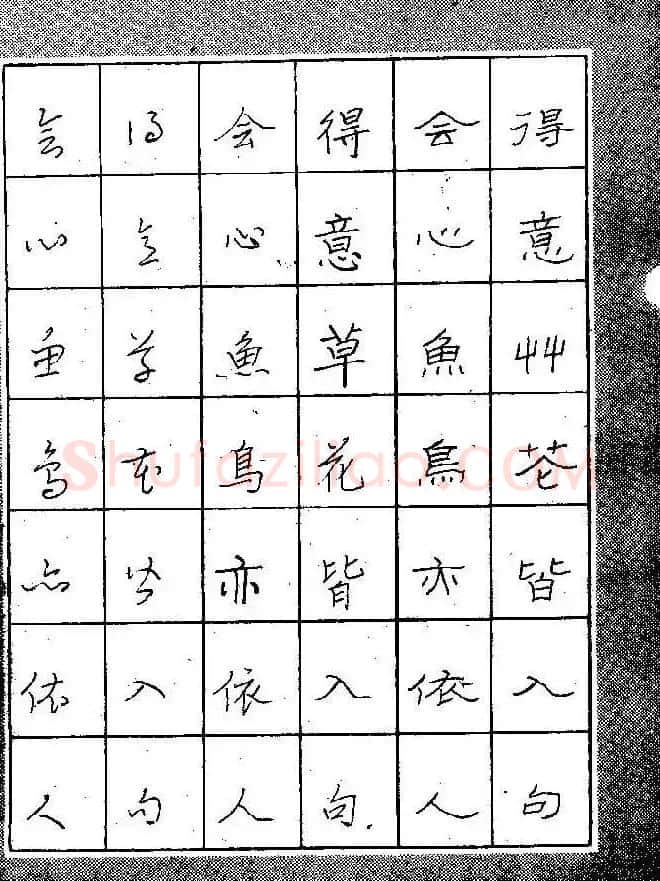 得意艸花皆入句
会心魚鳥亦依人
得意草花皆入句
会心魚鳥亦依人
得意草花皆入句
会心鱼鸟亦依人
Shufaziliao.COM